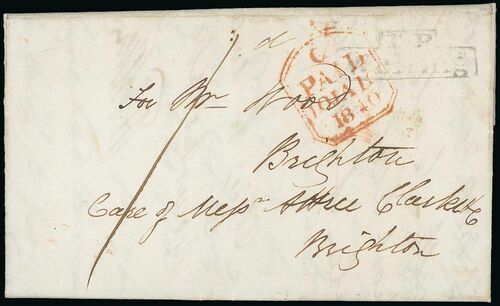 d
C
PAID
10 JA 10
1840
T.P
For Mr Wood
Brighton
Care of Messrs Attree Clarke &c
Brighton